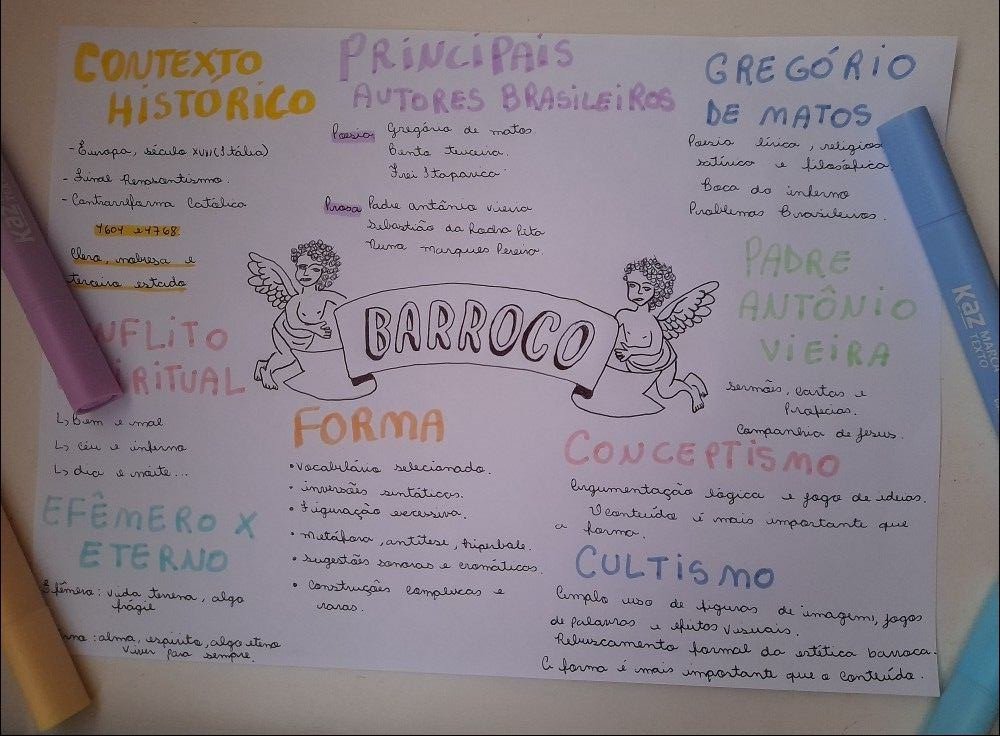 CONTEXTO
HISTÓRICO
- Europa, século XVII (Itália)
- Final Renascentismo.
- Contrarreforma Católica
1601 e 1768.
Clero, nobreza e
terceiro estado
CONFLITO
ESPIRITUAL
↳ Bem e mal
↳ céu e inferno
↳ dia e noite...
EFÊMERO X
ETERNO
Efêmero: vida terrena, algo
frágil
Eterno: alma, espírito, algo eterno
viver para sempre.
PRINCIPAIS
AUTORES BRASILEIROS
Poesia Gregório de matos
Bento teixeira.
Frei Itaparica.
Prosa Padre antônio vieira
Sebastião da Rocha Pita
Nuno marques Pereira.
BARROCO
FORMA
• vocabulário selecionado.
• inversões sintáticas.
• Figuração excessiva.
• metáfora, antítese, hiperbole.
• sugestões sonoras e cromáticas.
• construções complexas e
raras.
GREGÓRIO
DE MATOS
Poesia lírica, religiosa
satírica e filosófica.
Boca do inferno
Problemas Brasileiros.
PADRE
ANTÔNIO
VIEIRA
sermões, cartas e
Profecias.
Companhia de Jesus.
CONCEPTISMO
Argumentação lógica e jogo de ideias.
O conteúdo é mais importante que
a forma.
CULTISMO
Amplo uso de figuras de imagem, jogos
de palavras e efeitos visuais.
Rebuscamento formal da estética barroca.
A forma é mais importante que o conteúdo.
Kaz
Kaz MARCA
TEXTO